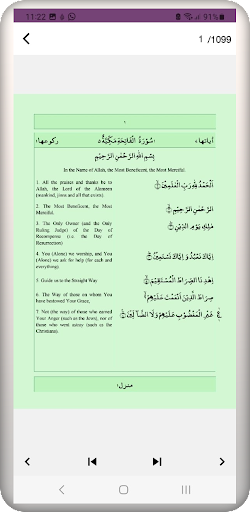 11:22
91%
1 /1099
اٰیاتھا،
سُوْرَةُ الْفَاتِحَةِ مَكِّيَّةٌ
رکوعھا،
بِسْمِ اللهِ الرَّحْمٰنِ الرَّحِيْمِ
In the Name of Allah, the Most Beneficent, the Most Merciful.
1. All the praises and thanks be to
Allah, the Lord of the Alameen
(mankind, jinns and all that exists).
اَلْحَمْدُ لِلّٰهِ رَبِّ الْعٰلَمِيْنَ
2. The Most Beneficent, the Most
Merciful.
الرَّحْمٰنِ الرَّحِيْمِ
3. The Only Owner (and the Only
Ruling Judge) of the Day of
Recompense (i.e. the Day of
Resurrection)
مٰلِكِ يَوْمِ الدِّيْنِ
4. You (Alone) we worship, and You
(Alone) we ask for help (for each and
everything).
اِيَّاكَ نَعْبُدُ وَاِيَّاكَ نَسْتَعِيْنُ
5. Guide us to the Straight Way
اِهْدِنَا الصِّرَاطَ الْمُسْتَقِيْمَ
6. The Way of those on whom You
have bestowed Your Grace,
صِرَاطَ الَّذِيْنَ اَنْعَمْتَ عَلَيْهِمْ
7. Not (the way) of those who earned
Your Anger (such as the Jews), nor of
those who went astray (such as the
Christians).
غَيْرِ الْمَغْضُوْبِ عَلَيْهِمْ وَلَا الضَّآلِّيْنَ
منزل